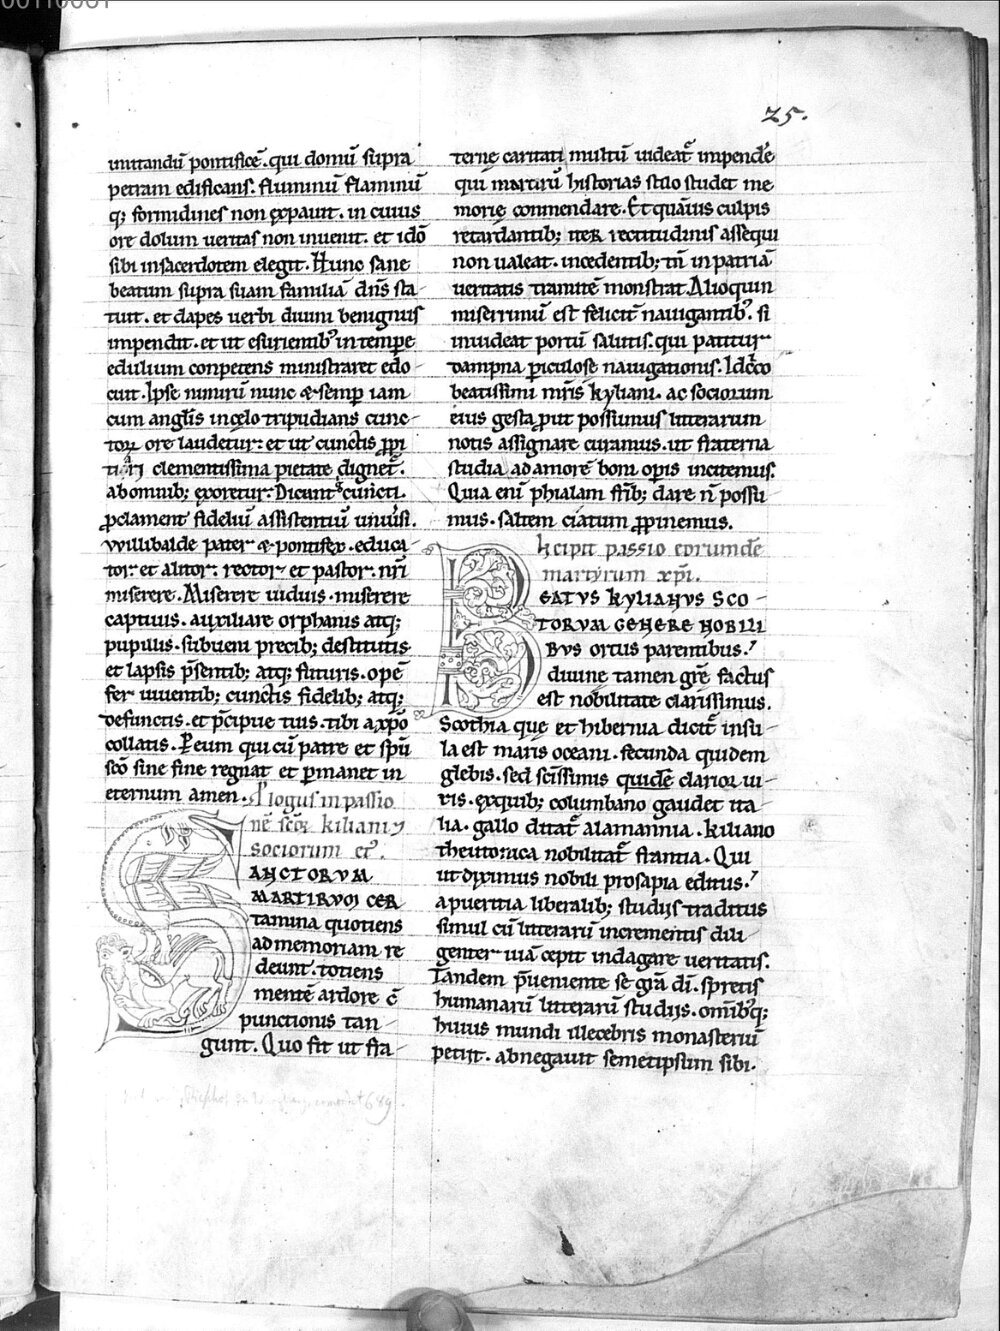 25.
imitandū pontificē. qui domū supra
petram edificans. fluminū flaminū
q; formidines non expauit. in cuius
ore dolum ueritas non inuenit. et idō
sibi in sacerdotem elegit. Hunc sane
beatum supra suam familiā dn̄s sta-
tuit. et dapes uerbi diuini benignus
impendit. et ut esurientibꝰ in tempe
edulium conpetens ministraret edo-
cuit. Ipse nimirū nunc & semp iam
cum angl̄is in celo tripudians cunc-
toꝝ ore laudetur: et ut cunctis ꝓpi
tiari clementissima pietate dignet᷑.
ab omnib; exoretur. Dicant cuncti.
ꝓclament fidelium assistentiū uniuersi.
Willibalde pater & pontifex. educa-
tor et alitor. rector et pastor. nr̄i
miserere. Miserere uiduis. miserere
captiuis. auxiliare orphanis atq;
pupillis. subueni precib; destitutis
et lapsis p̄sentib; atq; futuris. opē
fer uiuentib; cunctis fidelib; atq;
defunctis. et p̄cipue tuis. tibi a xp̄o
collatis. Per eum qui cū patre et sp̄u
sc̄o sine fine regnat et permanet in
eternum amen. Plogus in passio
nē sc̄oꝝ kiliani ⁊
sociorum eꝰ.
SANCTORVM
MARTIRVM CER
tamina quotiens
ad memoriam re
deunt. totiens
mentē ardore cō
punctionis tan-
gunt. Quo fit ut fra-
ternę caritati multū uideat᷑ impendē
qui martirū historias stilo studet me
morię conmendare. Et quāuis culpis
retardantib; iter rectitudinis assequi
non ualeat. incedentib; tn̄ in patriā
ueritatis tramitē monstrat. Alioquin
miserrimū est felicit᷑ nauigantibꝰ. si
inuideat portū salutis. qui patitur
dampna periculose nauigationis. Idcc̄o
beatissimi mr̄is kyliani. ac sociorum
eius gesta put possumus litterarum
notis assignare curamus. ut fraterna
studia ad amorē boni opis incitemus.
Quia eni phialam fr̄ib; dare n̄ possu
mus. saltem ciatum ꝓpinemus.
Incipit passio eorumdē
martyrum xp̄i.
BEATVS KYLIANVS SCO-
TORVM GENERE NOBILI
BVS ortus parentibus.
diuine tamen grē factus
est nobilitate clarissimus.
Scothia que et hibernia dicit᷑ insu-
la est maris oceani. fecunda quidem
glebis. sed sc̄issimis quidē clarior ui-
ris. ex quib; columbano gaudet ita-
lia. gallo ditat᷑ alamannia. kiliano
theutonica nobilitat᷑ francia. Qui
ut diximus nobili prosapia editus.
a pueritia liberalib; studijs traditus
simul cū litterarū incrementis dili
genter uiā cepit indagare ueritatis.
Tandem p̄ueniente se grā dī. spretis
humanarū litterarū studijs. omībꝰq;
huius mundi illecebris monasteriū
petijt. abnegauit semetipsum sibi.